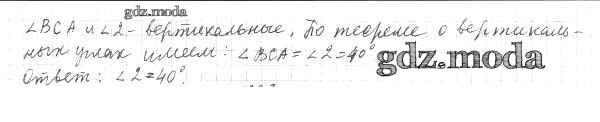 gdz.moda
∠BCA и ∠2 - вертикальные. По теореме о вертикаль-
ных углах имеем: ∠BCA = ∠2 = 40°
gdz.moda
Ответ: ∠2 = 40°.